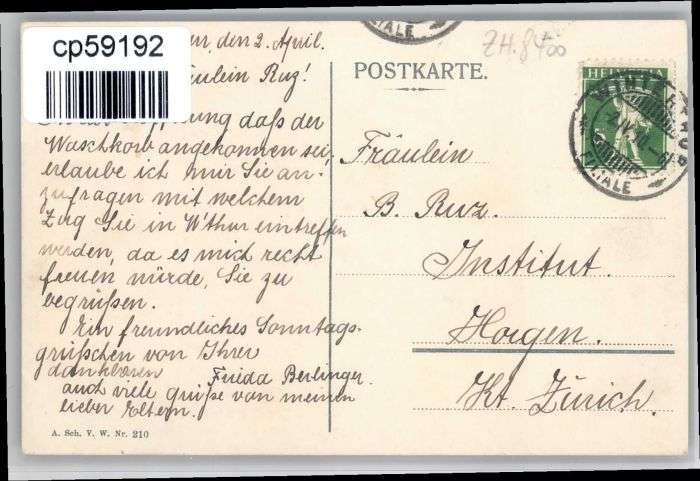 cp59192
den 2. April.
Ruz!
daß der
Waschkorb angekommen sei,
erlaube ich mir Sie an-
zufragen mit welchem
Zug Sie in W'thur eintreffen
werden, da es mich recht
freuen würde, Sie zu
begrüßen.
Ein freundliches Sonntags-
grüßchen von Ihrer
dankbaren Frieda Berlinger.
auch viele grüße von meinen
lieber Eltern.
A. Sch. V. W. Nr. 210
ZH. 8400
POSTKARTE.
HELVETIA
FILIALE
Fräulein
B. Ruz.
Institut.
Horgen.
Kt. Zürich.